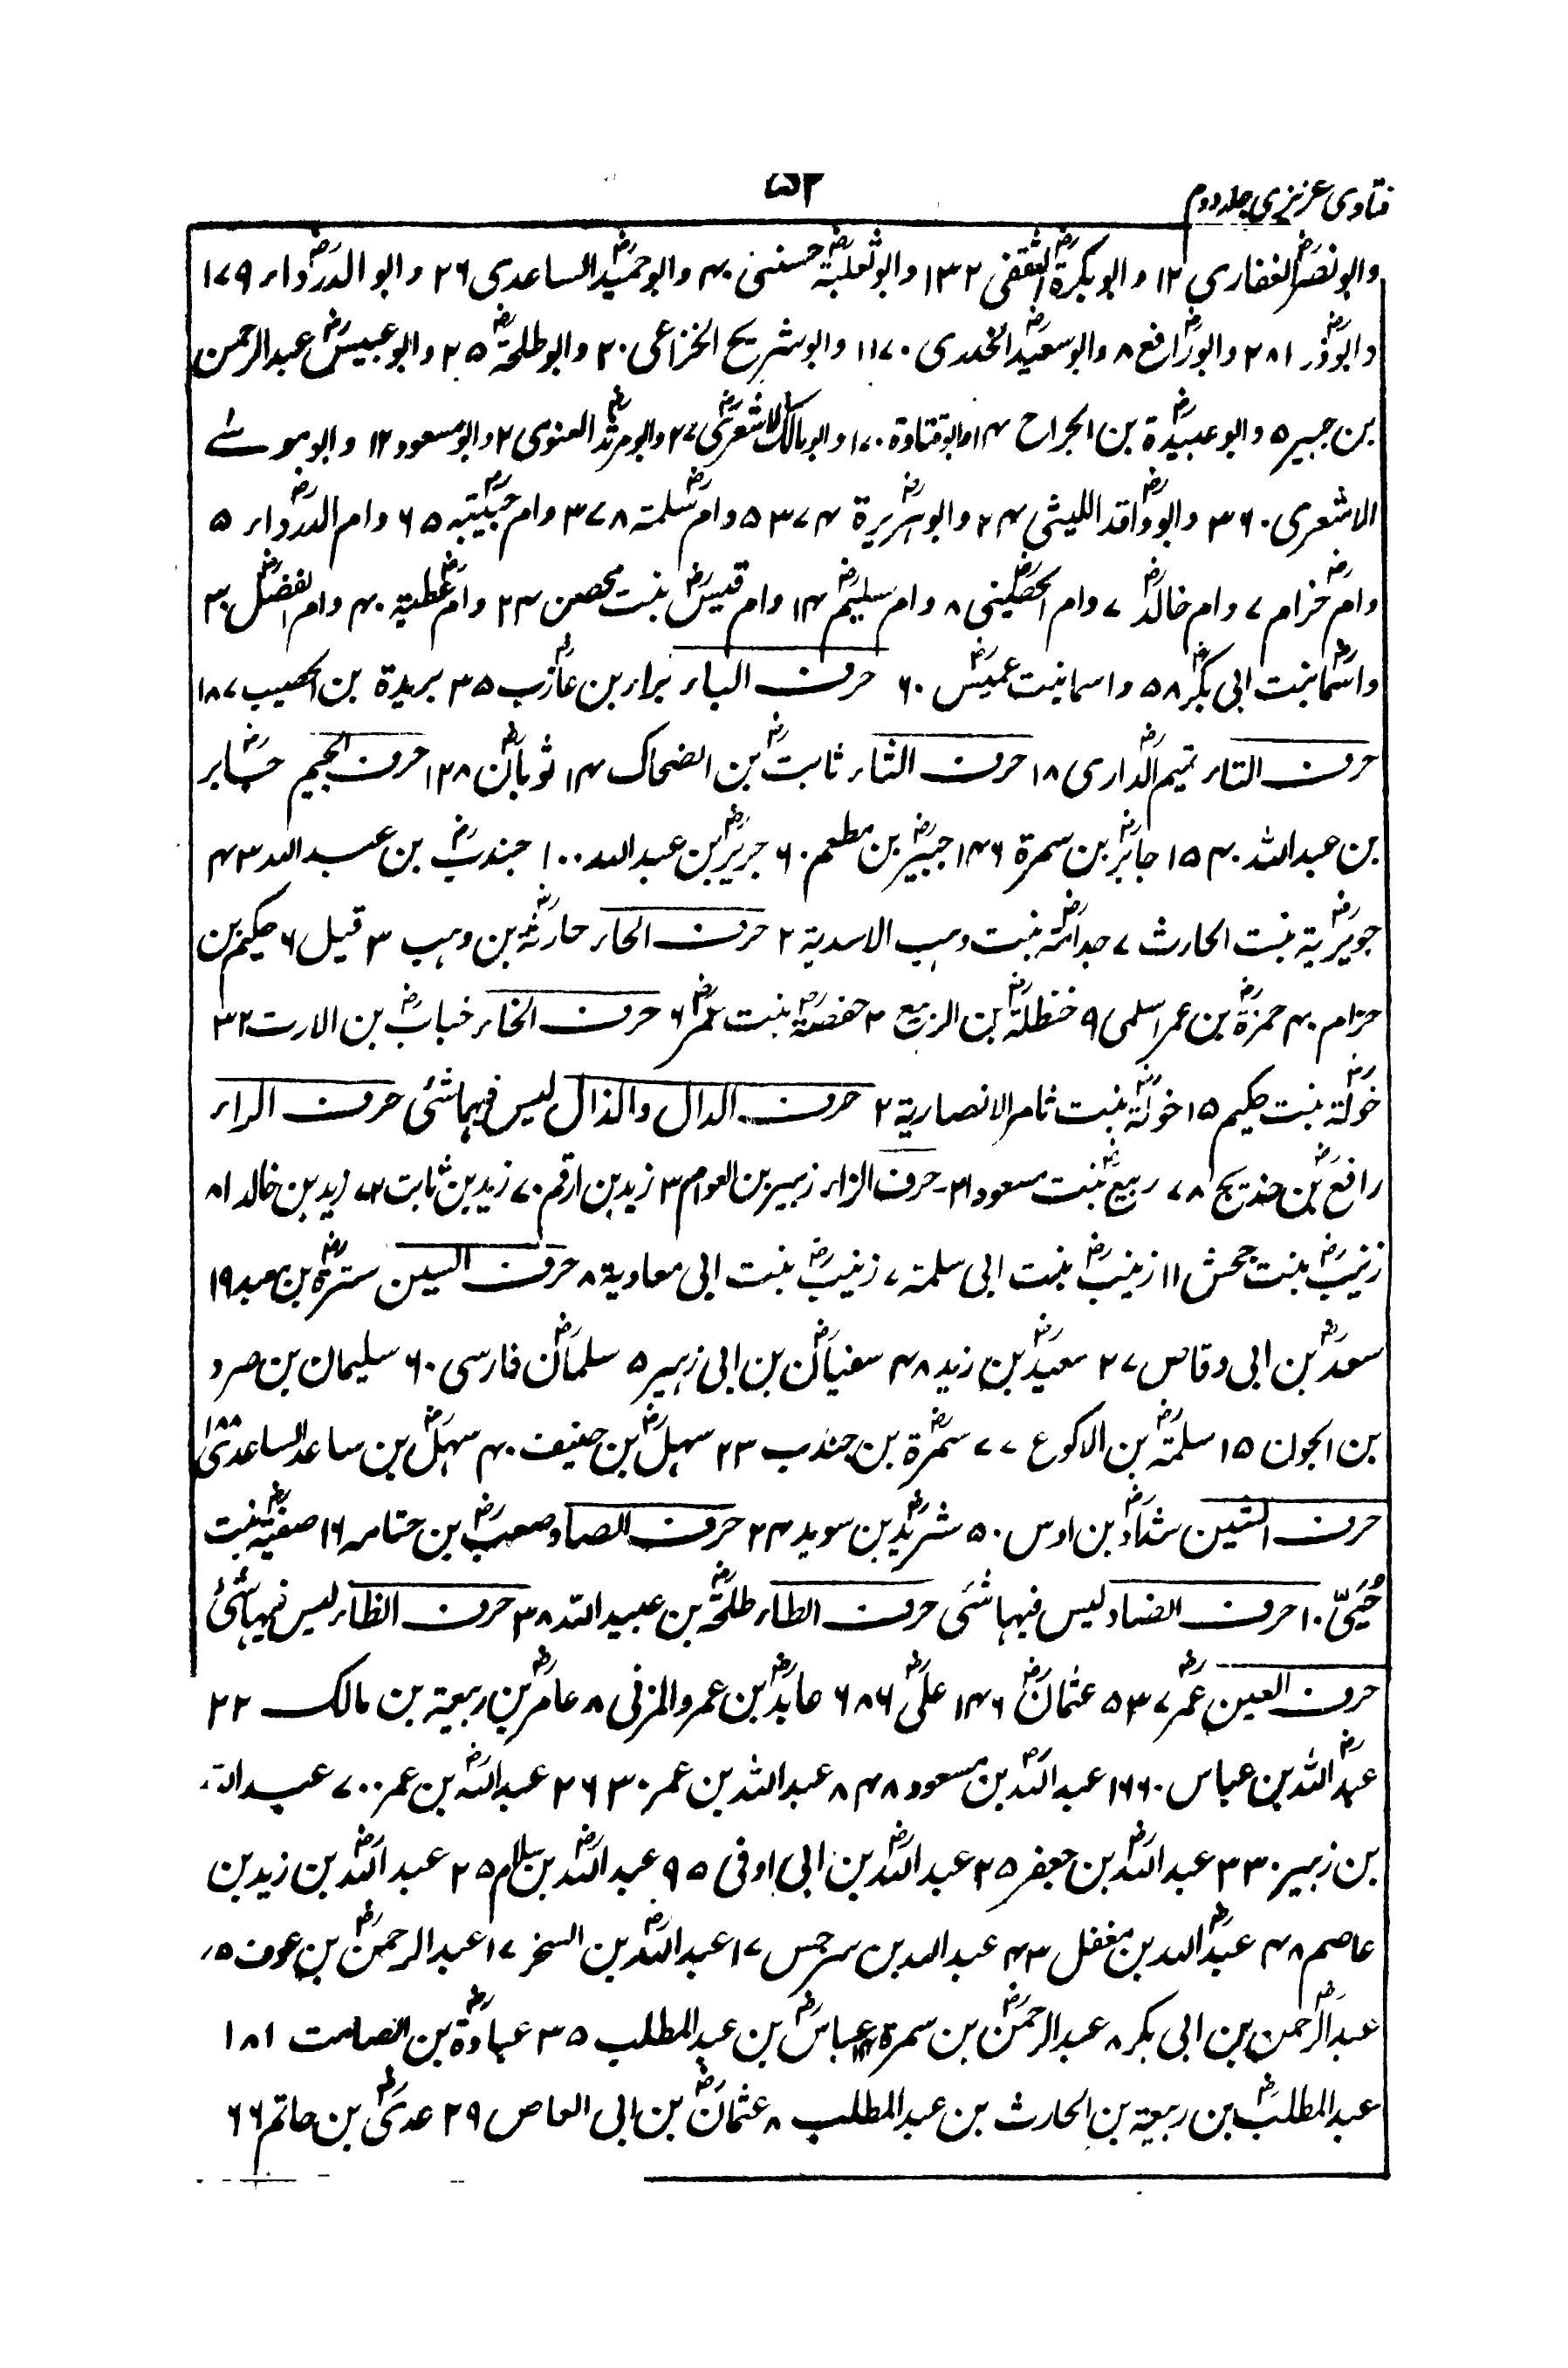 فتاوی عزیزی جلد دوم
۵۲
وابو نصرؓ الغفاری ۱۲ وابو بکرۃؓ الثقفی ۱۳۲ وابو ثعلبۃؓ حسننی ۴۰ وابو حمیدؓ الساعدی ۲۶ وابو الدرداءؓ ۱۷۹
وابوذرؓ ۲۸۱ وابو رافعؓ ۸ وابو سعیدؓ الخدری ۱۱۷۰ وابو شریح الخزاعی ۲۰ وابو طلحۃؓ ۲۵ وابو عبیسؓ عبد الرحمن
بن جبیر ۵ وابو عبیدۃؓ بن الجراح ۱۴ ابو قتادۃ ۱۷۰ وابو مالکؓ الاشعری ۲۷ وابو مرثدؓ الغنوی ۲ وابو مسعود ۱۲ وابو موسے
الاشعری ۳۶۰ وابو واقدؓ اللیثی ۲۴ وابو ہریرۃؓ ۵۳۷۴ وام سلمۃؓ ۳۷۸ وام حبیبۃؓ ۶۵ وام الدرداءؓ ۵
وام حرامؓ ۷ وام خالدؓ ۷ وام الحصینؓی ۸ وام سلیمؓ ۱۴ وام قیسؓ بنت محصن ۲۴ وام عطیۃؓ ۴۰ وام الفضلؓ ۳۰
واسماؓ بنت ابی بکرؓ ۵۸ واسما بنت عمیسؓ ۶۰ حرف الباء براء بن عازبؓ ۳۵ بریدۃ بن الحصیب ۱۸۷
حرف التاء تمیم الداریؓ ۱۸ حرف الثاء ثابتؓ بن الضحاک ۱۴ ثوبانؓ ۱۲۸ حرف الجیم جابرؓ
بن عبد اللہ ۱۵۴۰ جابرؓ بن سمرۃ ۱۴۶ جبیرؓ بن مطعم ۶۰ جریرؓ بن عبد اللہ ۱۰۰ جندبؓ بن عبد اللہ ۴۳
جویریۃؓ بنت الحارث ۷ جدامۃؓ بنت وہب الاسدیۃ ۲ حرف الحاء حارثہؓ بن وہب ۳ قیل ۶ حکیم بن
حزام ۴۰ حمزۃؓ بن عمر اسلمی ۹ حنظلۃؓ بن الربیع ۲ حفصۃؓ بنت عمرؓ ۶ حرف الخاء خبابؓ بن الارت ۳۲
خولۃؓ بنت حکیم ۱۵ خولۃؓ بنت ثامر الانصاریۃ ۲ حرف الدال والذال لیس فیہما شئی حرف الراء
رافعؓ بن خدیج ۷۸ ربیعؓ بنت مسعود ۲۱۔ حرف الزاء زبیر بن العوام ۳ زید بن ارقم ۷۰ زید بن ثابت ۷۲ زید بن خالد ۸۱
زینبؓ بنت جحش ۱۱ زینبؓ بنت ابی سلمۃ ۷ زینبؓ بنت ابی معاویۃ ۸ حرف السین سترۃؓ بن معبد ۱۹
سعدؓ بن ابی وقاص ۲۷ سعیدؓ بن زید ۴۸ سفیانؓ بن ابی زہیر ۵ سلمانؓ فارسی ۶۰ سلیمان بن صرد
بن الجون ۱۵ سلمۃؓ بن الاکوع ۷۷ سمرۃؓ بن جندب ۲۳ سہلؓ بن حنیف ۴۰ سہلؓ بن ساعد الساعدی ۱۸۸
حرف الشین شدادؓ بن اوس ۵۰ شریدؓ بن سوید ۲۴ حرف الصاد صعبؓ بن جثامہ ۱۶ صفیۃؓ بنت
حُیَیّ ۱۰ حرف الضاد لیس فیہا شئی حرف الطاء طلحۃؓ بن عبید اللہ ۳۸ حرف الظاء لیس فیہا شئی
حرف العین عمرؓ ۵۳۷ عثمانؓ ۱۴۶ علیؓ ۶۸۶ عابدؓ بن عمرو المزنی ۸ عامرؓ بن ربیعۃ بن مالک ۲۲
عبدؓ اللہ بن عباس ۱۶۶۰ عبد اللہؓ بن مسعود ۸۴۸ عبد اللہ بن عمر ۲۶۳۰ عبد اللہؓ بن عمر ۷۰۰ عبد اللہ
بن زبیر ۳۳۰ عبد اللہؓ بن جعفر ۲۵ عبد اللہؓ بن ابی اوفی ۹۵ عبد اللہؓ بن سلام ۲۵ عبد اللہؓ بن زید بن
عاصم ۴۸ عبدؓ اللہ بن مغفل ۴۳ عبد اللہ بن سرجس ۱۷ عبد اللہؓ بن السخر ۱۷ عبد الرحمنؓ بن عوف ۵
عبد الرحمنؓ بن ابی بکر ۸ عبد الرحمنؓ بن سمرۃ ۱۴ عباسؓ بن عبد المطلب ۳۵ عبادۃؓ بن الصامت ۱۸۱
عبد المطلبؓ بن ربیعۃ بن الحارث بن عبد المطلب ۸ عثمانؓ بن ابی العاص ۲۹ عدیؓ بن حاتم ۶۶